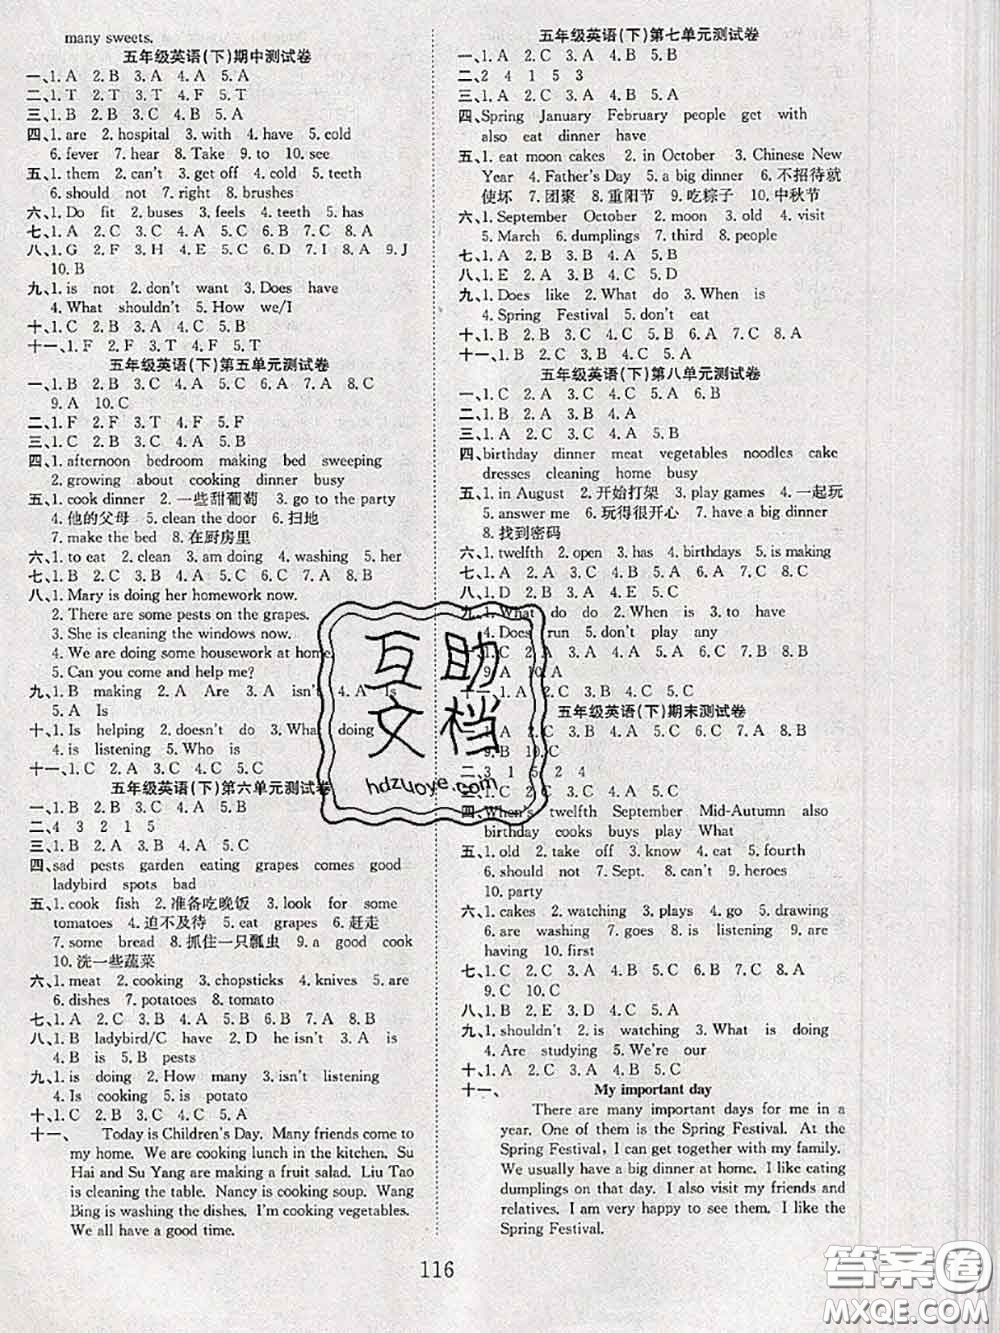 many sweets.
五年级英语(下)期中测试卷
一、1. A 2. B 3. A 4. A 5. A
二、1. T 2. T 3. T 4. F 5. T
三、1. B 2. B 3. C 4. B 5. A
四、1. are 2. hospital 3. with 4. have 5. cold
6. fever 7. hear 8. Take 9. to 10. see
五、1. them 2. can't 3. get off 4. cold 5. teeth
6. should not 7. right 8. brushes
六、1. Do fit 2. buses 3. feels 4. teeth 5. has
七、1. A 2. C 3. A 4. C 5. B 6. C 7. C 8. A
八、1. G 2. F 3. H 4. E 5. C 6. D 7. I 8. A 9. J
10. B
九、1. is not 2. don't want 3. Does have
4. What shouldn't 5. How we/I
十、1. C 2. B 3. A 4. C 5. B
十一、1. F 2. F 3. T 4. T 5. F
五年级英语(下)第五单元测试卷
一、1. B 2. B 3. C 4. A 5. A 6. A 7. A 8. C
9. A 10. C
二、1. F 2. F 3. T 4. F 5. F
三、1. C 2. B 3. C 4. A 5. B
四、1. afternoon bedroom making bed sweeping
2. growing about cooking dinner busy
五、1. cook dinner 2. 一些甜葡萄 3. go to the party
4. 他的父母 5. clean the door 6. 扫地
7. make the bed 8. 在厨房里
六、1. to eat 2. clean 3. am doing 4. washing 5. her
七、1. B 2. B 3. C 4. C 5. B 6. A 7. A 8. B
八、1. Mary is doing her homework now.
2. There are some pests on the grapes.
3. She is cleaning the windows now.
4. We are doing some housework at home.
5. Can you come and help me?
九、1. B making 2. A Are 3. A isn't 4. A Is
5. A Is
十、1. Is helping 2. doesn't do 3. What doing
4. is listening 5. Who is
十一、1. C 2. A 3. B 4. A 5. C
五年级英语(下)第六单元测试卷
一、1. B 2. B 3. C 4. A 5. C
二、4 3 2 1 5
三、1. B 2. C 3. A 4. A 5. C
四、sad pests garden eating grapes comes good
ladybird spots bad
五、1. cook fish 2. 准备吃晚饭 3. look for some
tomatoes 4. 迫不及待 5. eat grapes 6. 赶走
7. some bread 8. 抓住一只瓢虫 9. a good cook
10. 洗一些蔬菜
六、1. meat 2. cooking 3. chopsticks 4. knives 5. are
6. dishes 7. potatoes 8. tomato
七、1. A 2. C 3. B 4. A 5. C 6. B 7. B 8. C
八、1. B ladybird/C have 2. D he isn't 3. A is
4. B is 5. B pests
九、1. is doing 2. How many 3. isn't listening
4. Is cooking 5. is potato
十、1. C 2. B 3. A 4. C 5. B
十一、 Today is Children's Day. Many friends come to
my home. We are cooking lunch in the kitchen. Su
Hai and Su Yang are making a fruit salad. Liu Tao
is cleaning the table. Nancy is cooking soup. Wang
Bing is washing the dishes. I'm cooking vegetables.
We all have a good time.
五年级英语(下)第七单元测试卷
一、1. A 2. C 3. A 4. B 5. B
二、2 4 1 5 3
三、1. B 2. C 3. B 4. B 5. A
四、Spring January February people get with
also eat dinner have
五、1. eat moon cakes 2. in October 3. Chinese New
Year 4. Father's Day 5. a big dinner 6. 不招待就
使坏 7. 团聚 8. 重阳节 9. 吃粽子 10. 中秋节
六、1. September October 2. moon 3. old 4. visit
5. March 6. dumplings 7. third 8. people
七、1. A 2. B 3. B 4. C 5. C
八、1. E 2. A 3. D 4. B 5. C
九、1. Does like 2. What do 3. When is
4. Spring Festival 5. don't eat
十、1. B 2. A 3. A 4. B 5. A 6. A 7. C 8. A
十一、1. C 2. A 3. B 4. A 5. B
五年级英语(下)第八单元测试卷
一、1. C 2. C 3. B 4. C 5. A 6. B
二、1. B 2. A 3. B 4. A
三、1. C 2. B 3. C 4. A 5. B
四、birthday dinner meat vegetables noodles cake
dresses cleaning home busy
五、1. in August 2. 开始打架 3. play games 4. 一起玩
5. answer me 6. 玩得很开心 7. have a big dinner
8. 找到密码
六、1. twelfth 2. open 3. has 4. birthdays 5. is making
七、1. A 2. A 3. B 4. C 5. B 6. A 7. B 8. A
八、1. D 2. B 3. E 4. A 5. C
九、1. What do do 2. When is 3. to have
4. Does run 5. don't play any
十、1. C 2. A 3. C 4. B 5. B 6. B 7. A 8. B
9. A 10. A
十一、1. C 2. B 3. A 4. A 5. C
五年级英语(下)期末测试卷
2. A 3. C 4. C 5. C 6. A 7. B 8. B
9. B 10. C
二、3 1 5 2 4
三、1. C 2. C 3. B 4. C 5. C
四、When's twelfth September Mid-Autumn also
birthday cooks buys play What
五、1. old 2. take off 3. know 4. eat 5. fourth
6. should not 7. Sept. 8. can't 9. heroes
10. party
六、1. cakes 2. watching 3. plays 4. go 5. drawing
6. are washing 7. goes 8. is listening 9. are
having 10. first
七、1. C 2. A 3. B 4. A 5. C 6. B 7. B 8. A
9. C 10. C
八、1. B 2. E 3. D 4. C 5. A
九、1. shouldn't 2. is watching 3. What is doing
4. Are studying 5. We're our
十、1. C 2. C 3. A 4. B 5. C
十一、 My important day
There are many important days for me in a
year. One of them is the Spring Festival. At the
Spring Festival, I can get together with my family.
We usually have a big dinner at home. I like eating
dumplings on that day. I also visit my friends and
relatives. I am very happy to see them. I like the
Spring Festival.
116
互助
文档
hdzuoye.com
答案圈
MXQE.COM